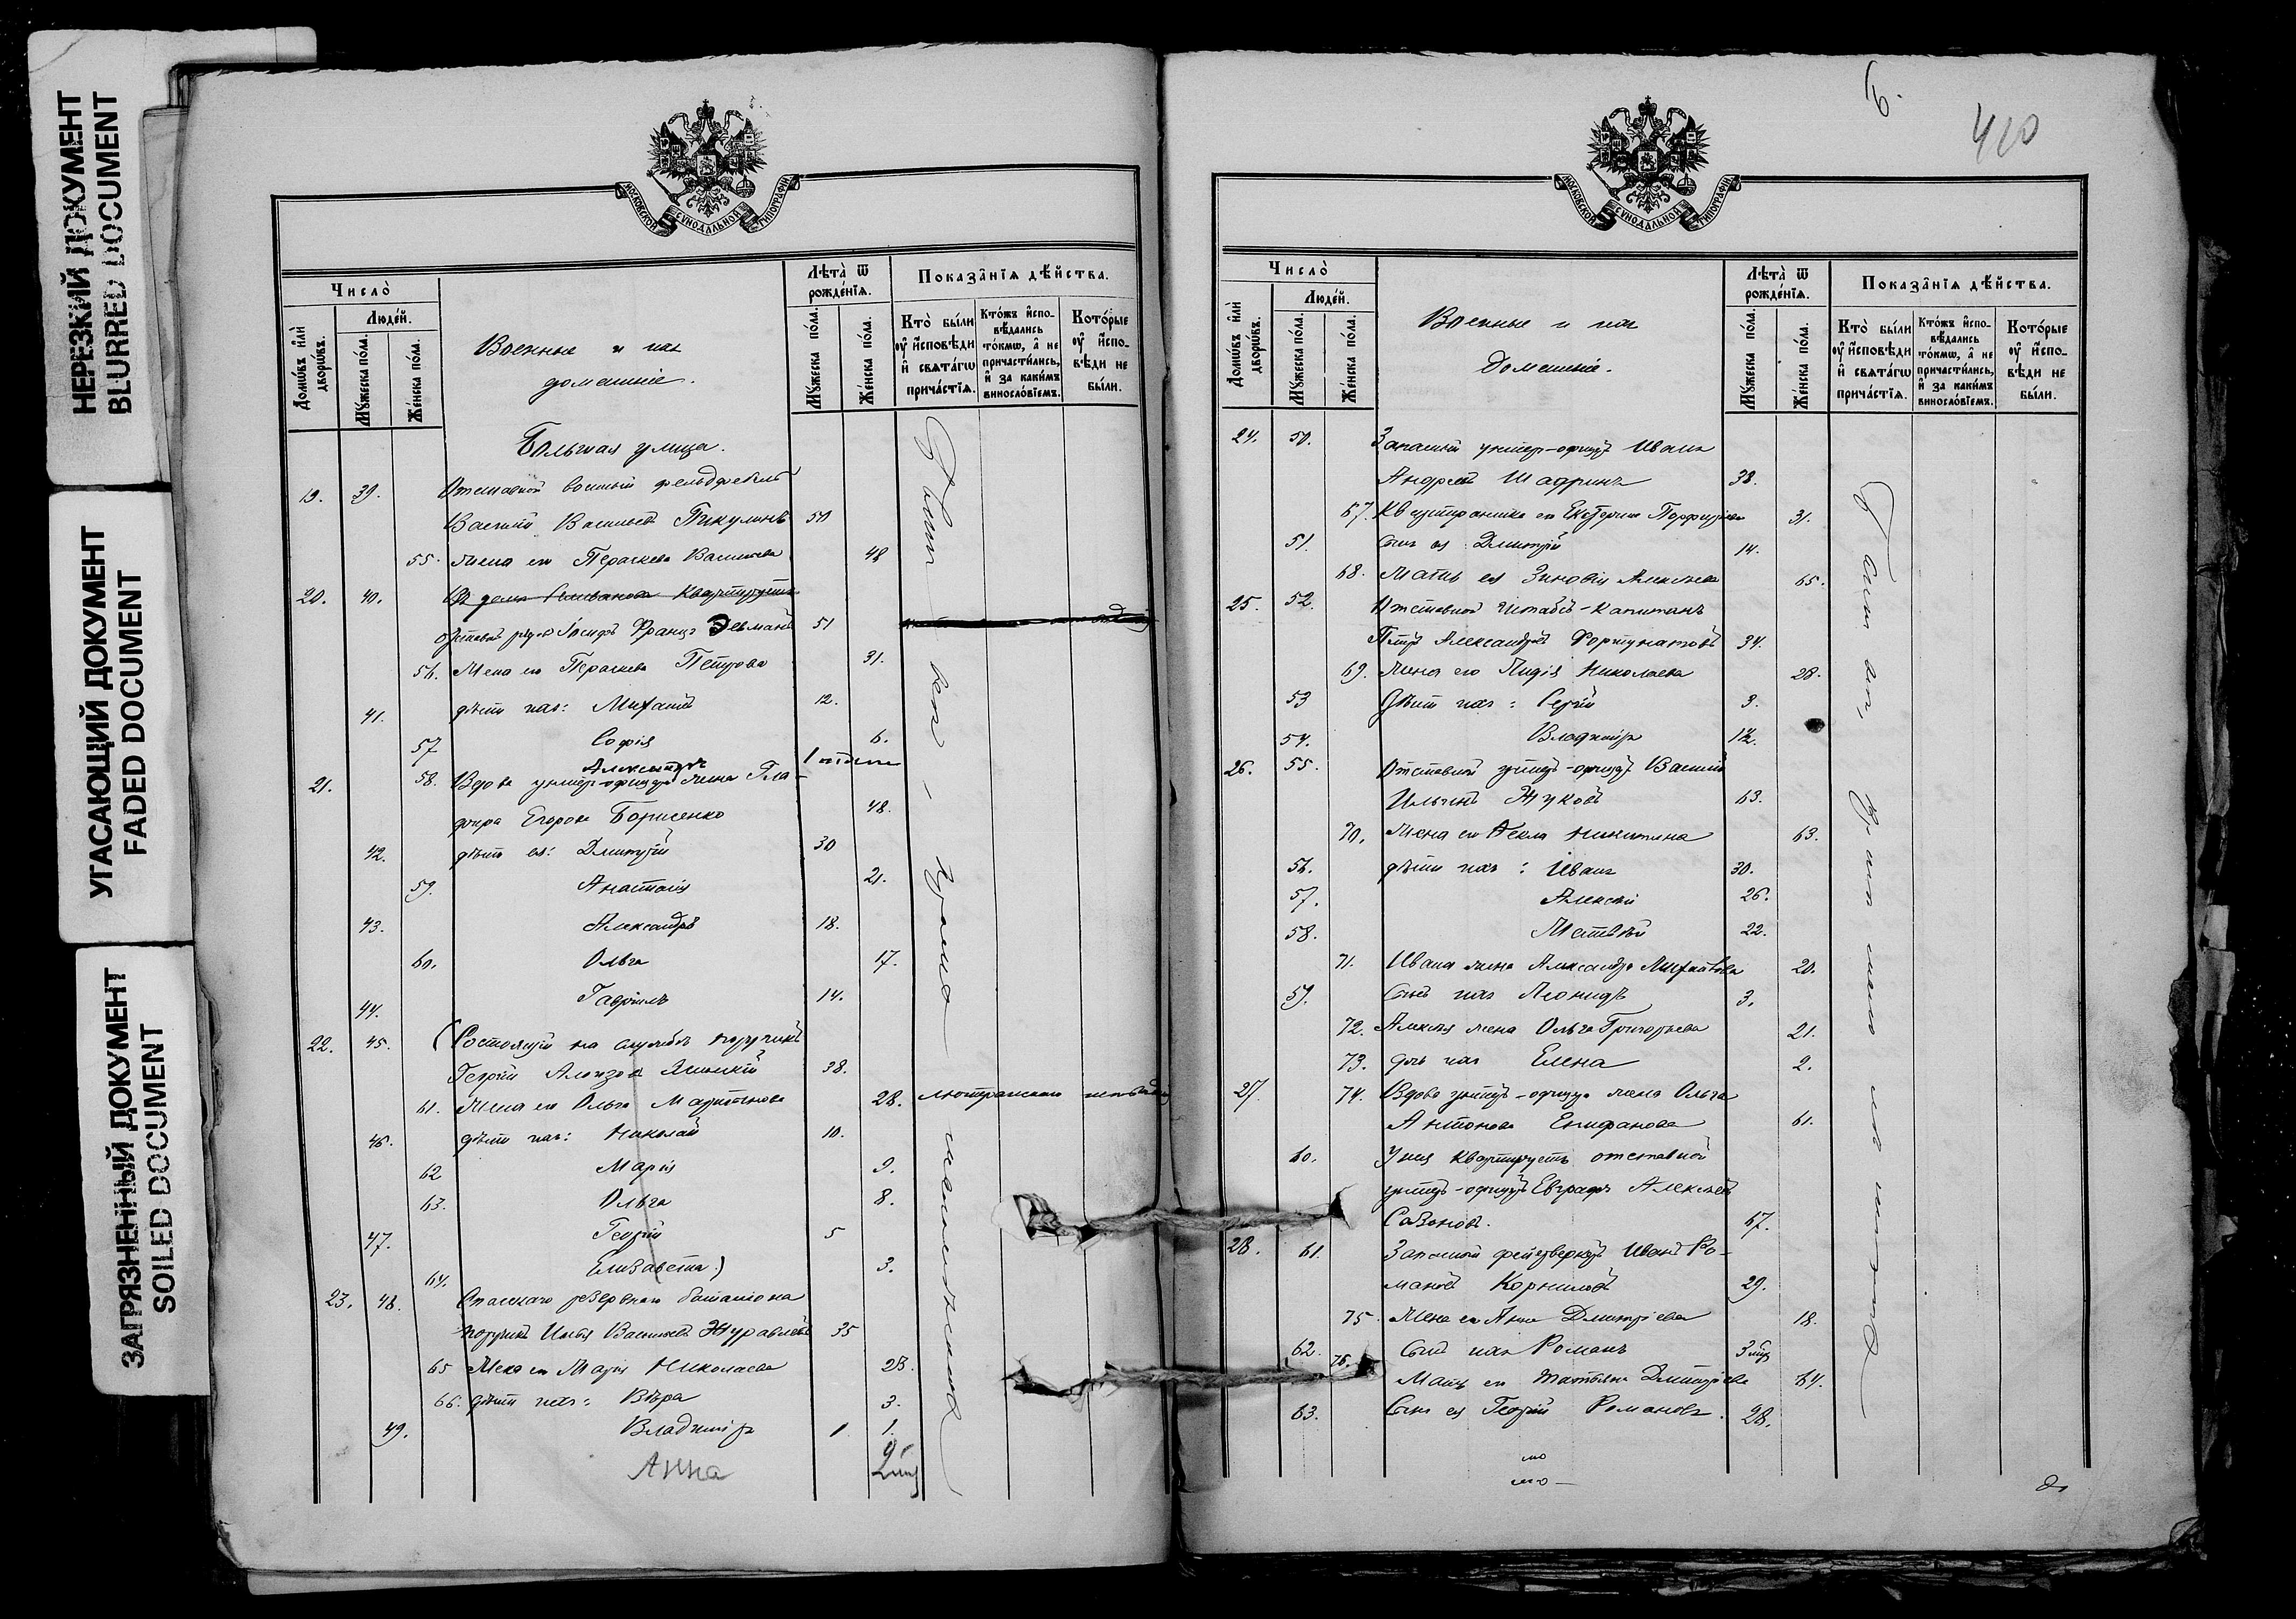 НЕРЕЗКИЙ ДОКУМЕНТ
BLURRED DOCUMENT
УГАСАЮЩИЙ ДОКУМЕНТ
FADED DOCUMENT
ЗАГРЯЗНЕННЫЙ ДОКУМЕНТ
SOILED DOCUMENT
МОСКОВСКОЙ СѴНОДАЛЬНОЙ ТИПОГРАФІИ
Число̀
Домѡ́въ и҆лѝ дворѡ́въ.
Люде́й.
Мꙋ́жеска по́ла.
Же́нска по́ла.
Военные и их
домашніе.
Лѣта̀ ѿ рожде́нїѧ.
Мꙋ́жеска по́ла.
Же́нска по́ла.
Показа̑нїѧ дѣ́йства.
Кто̀ бы́ли ᲂу҆ и҆сповѣди и҆ свѧта́гѡ прича́стїѧ.
Кто́жъ и҆спо-вѣдались то́кмѡ, а҆ не причасти́лись, и҆ за каки́мъ винословїемъ.
Кото́рые ᲂу҆ и҆спо-вѣди не бы́ли.
Большая улица.
19. 39. Отставной военный фельдфебель
Василий Васильев Пикулинъ 50
55. Жена его Параскева Васильева 48
20. 40. Въ доме Квартируетъ
Іосифъ Францъ 51
56. Жена его Параскева Петрова 31.
41. дѣти ихъ: Михаилъ 12.
57 Софія 6.
Александръ
21. 58. Вдова унтер-офицера жена Гла-
фира Егорова Борисенко 48.
42. дѣти ея: Димитрій 30
59. Анастасія 21.
43. Александръ 18.
60. Ольга 17.
44. Гавріилъ 14.
22. 45. (Состоящій на службѣ поручикъ
Георгій 38.
61. Жена его Ольга Мартинова 28. лютеранскаго
46. дѣти ихъ: Николай 10.
62 Марія 9.
63. Ольга 8.
47. Георгій 5
64. Елизавета.) 3.
23. 48. Спасскаго резервнаго баталіона
поручикъ Илья Васильевъ Журавлевъ 35
65 Жена его Марія Николаева 23.
66. дѣти ихъ: Вѣра 3.
49. Владиміръ 1 1.
Анна 2
9
410
МОСКОВСКОЙ СѴНОДАЛЬНОЙ ТИПОГРАФІИ
Число̀
Домѡ́въ и҆лѝ дворѡ́въ.
Люде́й.
Мꙋ́жеска по́ла.
Же́нска по́ла.
Военные и их
домашніе.
Лѣта̀ ѿ рожде́нїѧ.
Мꙋ́жеска по́ла.
Же́нска по́ла.
Показа̑нїѧ дѣ́йства.
Кто̀ бы́ли ᲂу҆ и҆сповѣди и҆ свѧта́гѡ прича́стїѧ.
Кто́жъ и҆спо-вѣдались то́кмѡ, а҆ не причасти́лись, и҆ за каки́мъ винословїемъ.
Кото́рые ᲂу҆ и҆спо-вѣди не бы́ли.
24. 50. Запасный унтер-офицеръ Иванъ
Андреевъ Шадринъ 38.
67. Квартирантка его Екатерина Порфирьева 31.
51. Сынъ ея Димитрій 14.
68. Мать ея Зиновія Алексѣева 65.
25. 52. Отставной штабсъ-капитанъ
Петръ Александровъ Фортунатовъ 34.
69. Жена его Лидія Николаева 28.
53 Дѣти ихъ: Сергій 3.
54. Владиміръ
26. 55. Отставной унтеръ-офицеръ Василій
Ильинъ Жуковъ 63.
70. Жена его Ѳекла Никитина 63.
56. дѣти ихъ: Иванъ 30.
57. Алексѣй 26.
58. Матвѣй 22.
71. Ивана жена Александра Михайлова 20.
59. Сынъ ихъ Леонидъ 3.
72. Алексѣя жена Ольга Григорьева 21.
73. дочь ихъ Елена 2.
27. 74. Вдова унтеръ-офицера жена Ольга
Антонова Епифанова 61.
60. У нея квартируетъ отставной
унтеръ-офицеръ Евграфъ Алексѣевъ
Сазоновъ. 67.
28. 61. Запасный фейерверкеръ Иванъ Ро-
мановъ Корниловъ 29.
75. Жена его Анна Димитріева 18.
62. Сынъ ихъ Романъ
76. Мать его Татьяна Димитріева 64.
63. Сынъ ея Георгій Романовъ. 28.